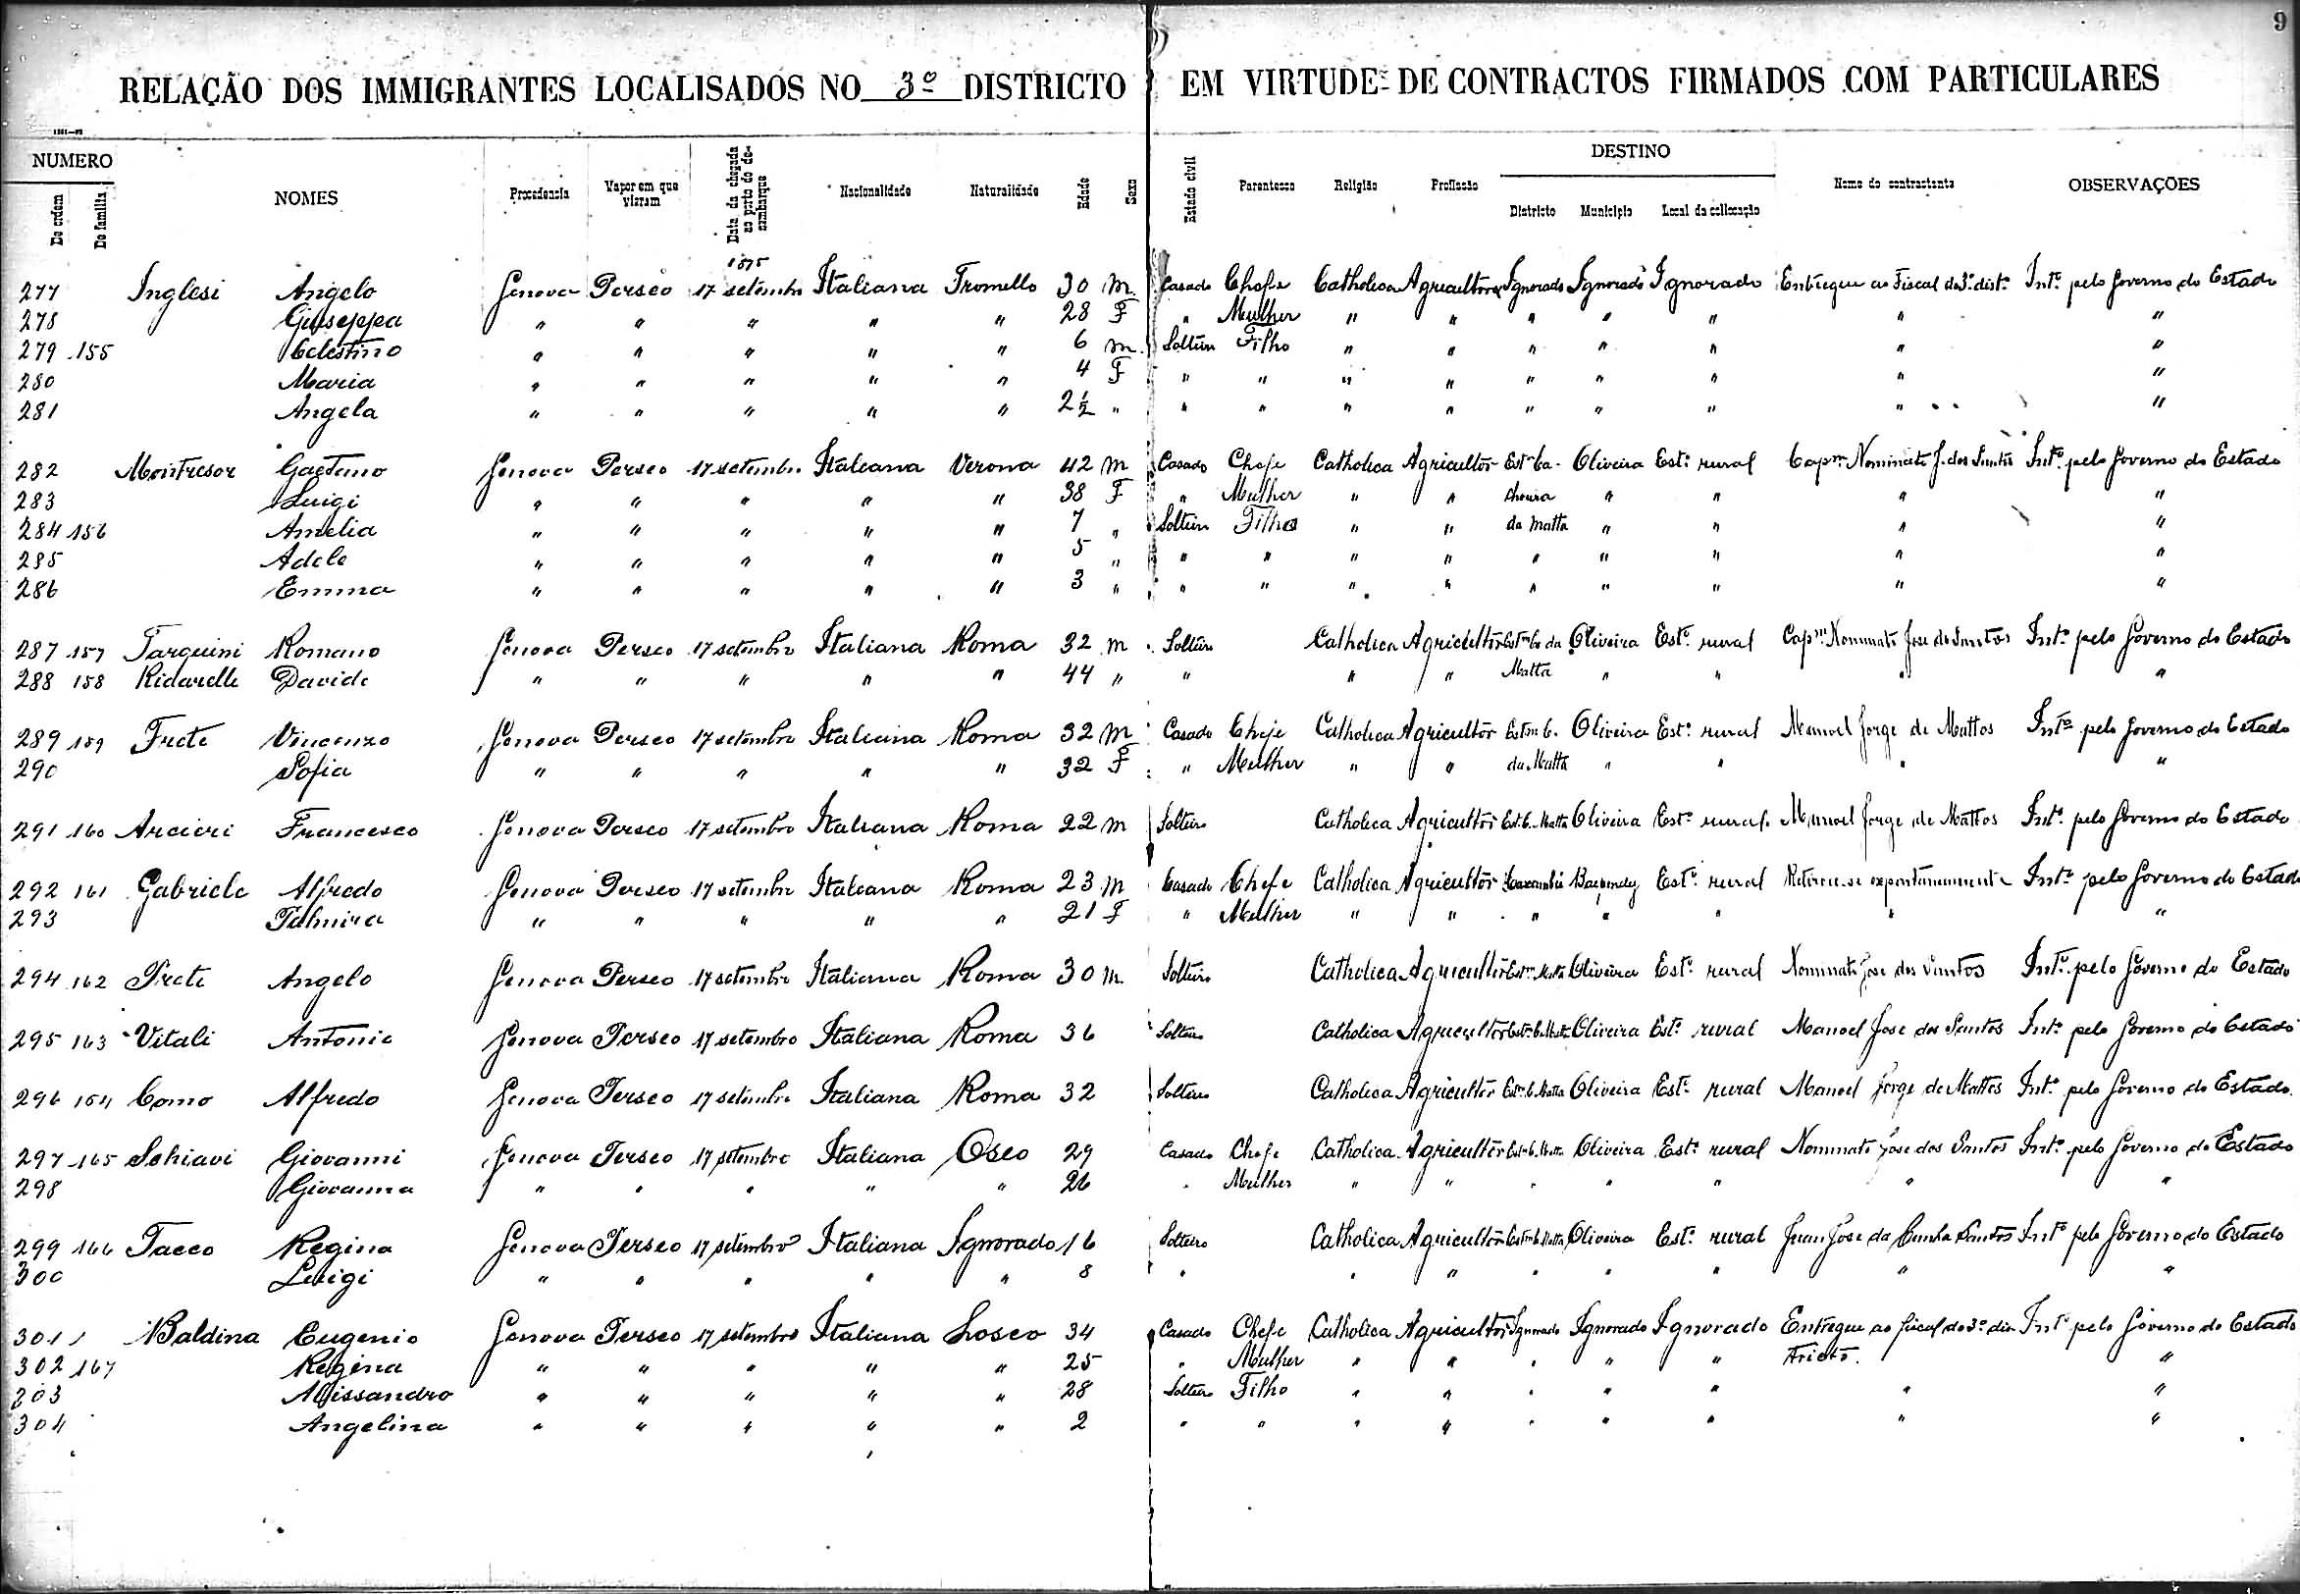 9
RELAÇÃO DOS IMMIGRANTES LOCALISADOS NO 3º DISTRICTO EM VIRTUDE DE CONTRACTOS FIRMADOS COM PARTICULARES
NUMERO DESTINO
De ordem De familia NOMES Procedencia Vapor em que vieram Data da chegada ao porto do desembarque Nacionalidade Naturalidade Edade Sexo Estado civil Parentesco Religião Profissão Districto Municipio Local da collocação Nome do contractante OBSERVAÇÕES
1895
277 Inglesi Angelo Genova Perseo 17 setembro Italiana Tromello 30 M. Casado Chefe Catholica Agricultor Ignorado Ignorado Ignorado Entregue ao Fiscal do 3º distº Intº pelo Governo do Estado
278 Giuseppa " " " " " 28 F " Mulher " " " " " " "
279 155 Celestino " " " " " 6 m. Solteiro Filho " " " " " " "
280 Maria " " " " " 4 F " " " " " " " " "
281 Angela " " " " " 2½ " " " " " " " " " "
282 Montresor Gaetano Genova Perseo 17 setembro Italiana Verona 42 M Casado Chefe Catholica Agricultor Estm Ca- Oliveira Estº rural Capm Nominato J. dos Santos Intº pelo Governo do Estado
283 Luigi " " " " " 38 F " Mulher " " choeira " " " "
284 156 Amelia " " " " " 7 " Solteiro Filha " " da Matta " " " "
285 Adele " " " " " 5 " " " " " " " " " "
286 Emma " " " " " 3 " " " " " " " " " "
287 157 Tarquini Romano Genova Perseo 17 setembro Italiana Roma 32 M Solteiro Catholica Agricultor Oliveira Estº rural Capm Nominato Jose dos Santos Intº pelo Governo do Estado
288 158 Ridarelle Davide " " " " " 44 " " " " Matta " " " "
289 159 Frete Vincenzo Genova Perseo 17 setembro Italiana Roma 32 M Casado Chefe Catholica Agricultor Estm C. Oliveira Estº rural Manoel Jorge de Mattos Intº pelo Governo do Estado
290 Sofia " " " " " 32 F " Mulher " " da Matta " " " "
291 160 Arcieri Francesco Genova Perseo 17 setembro Italiana Roma 22 M Solteiro Catholica Agricultor Est. C. Matta Oliveira Estº rural Manoel Jorge de Mattos Intº pelo Governo do Estado
292 161 Gabriele Alfredo Genova Perseo 17 setembro Italiana Roma 23 M Casado Chefe Catholica Agricultor Caxambú Baependy Estº rural Retirou-se expontaneamente Intº pelo Governo do Estado
293 Palmira " " " " " 21 F " Mulher " " " " " " "
294 162 Prete Angelo Genova Perseo 17 setembro Italiana Roma 30 M. Solteiro Catholica Agricultor Oliveira Estº rural Nominato Jose dos Santos Intº pelo Governo do Estado
295 163 Vitali Antonio Genova Perseo 17 setembro Italiana Roma 36 Solteiro Catholica Agricultor Estm C. Matta Oliveira Estº rural Manoel Jose dos Santos Intº pelo Governo do Estado
296 164 Como Alfredo Genova Perseo 17 setembro Italiana Roma 32 Solteiro Catholica Agricultor Estm C. Matta Oliveira Estº rural Manoel Jorge de Mattos Intº pelo Governo do Estado.
297 165 Schiavi Giovanni Genova Perseo 17 setembro Italiana Oseo 29 Casado Chefe Catholica Agricultor Estm C. Matta Oliveira Estº rural Nominato Jose dos Santos Intº pelo Governo do Estado
298 Giovanna " " " " " 26 " Mulher " " " " " " "
299 166 Tacco Regina Genova Perseo 17 setembro Italiana Ignorado 16 Solteiro Catholica Agricultor Estm C. Matta Oliveira Estº rural Juan Jose da Cunha Santos Intº pelo Governo do Estado
300 Luigi " " " " " 8 " " " " " " " "
301 Baldina Eugenio Genova Perseo 17 setembro Italiana Losco 34 Casado Chefe Catholica Agricultor Ignorado Ignorado Ignorado Entregue ao fiscal do 3º dis- Intº pelo Governo do Estado
302 167 Regina " " " " " 25 " Mulher " " " " " tricto. "
303 Alissandro " " " " " 28 Solteiro Filho " " " " " " "
304 Angelina " " " " " 2 " " " " " " " " "